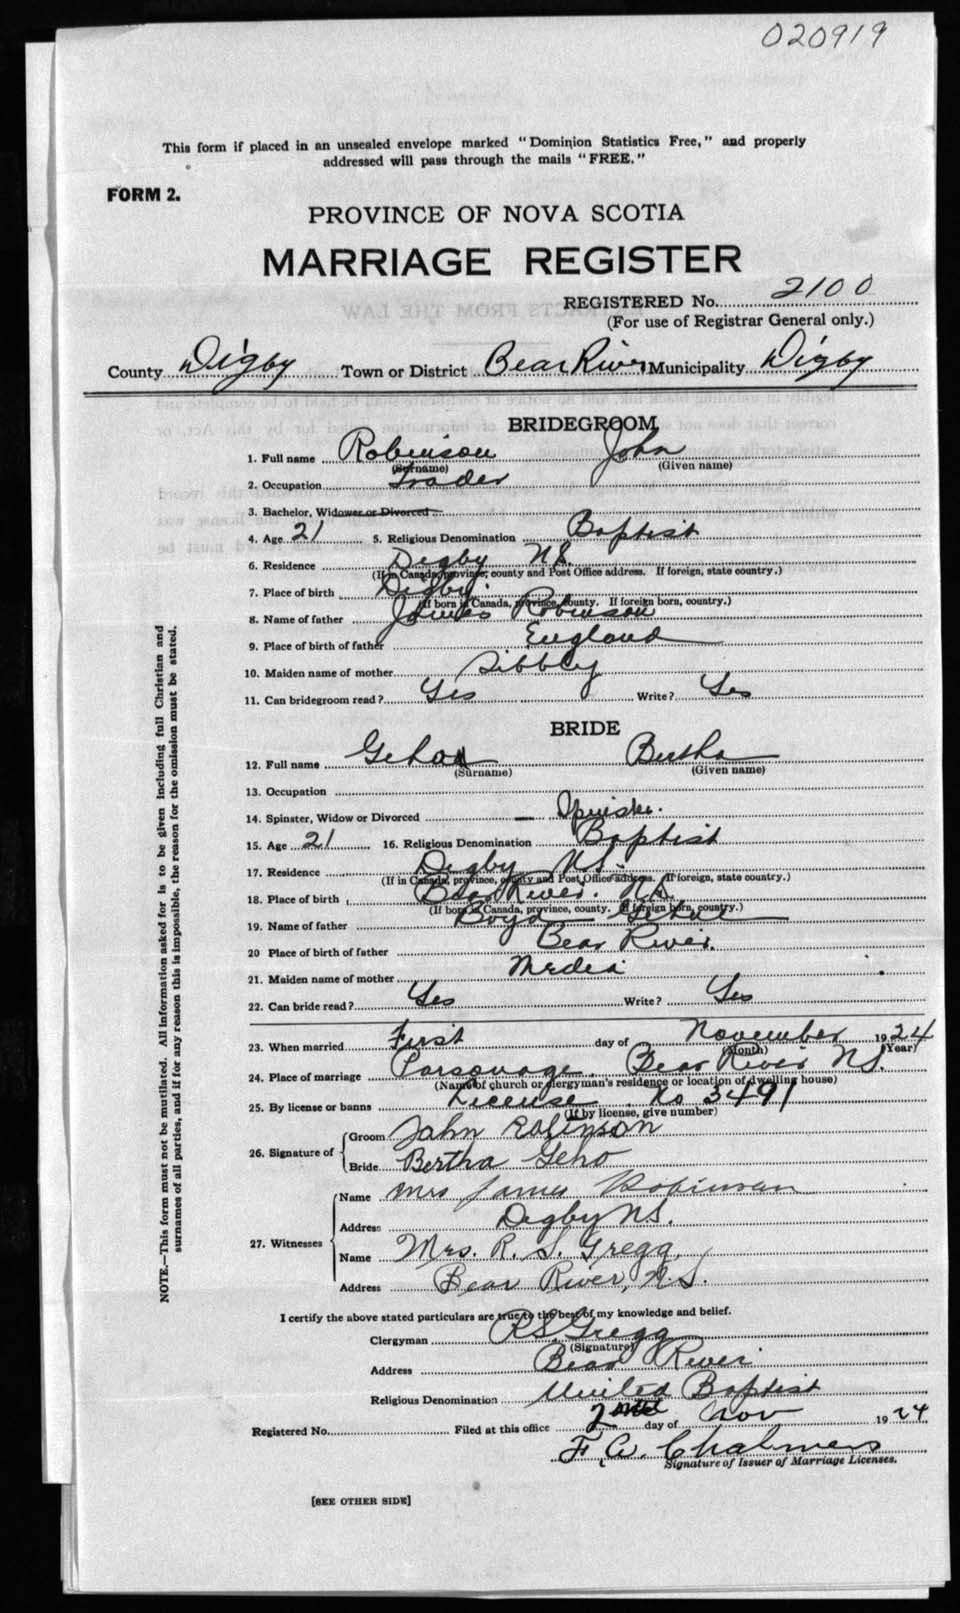 020919
This form if placed in an unsealed envelope marked "Dominion Statistics Free," and properly
addressed will pass through the mails "FREE."
FORM 2.
PROVINCE OF NOVA SCOTIA
MARRIAGE REGISTER
REGISTERED No. 2100
(For use of Registrar General only.)
County Digby Town or District Bear River Municipality Digby
BRIDEGROOM
1. Full name Robinson John
(Surname) (Given name)
2. Occupation Trader
3. Bachelor, Widower or Divorced
4. Age 21 5. Religious Denomination Baptist
6. Residence Digby N.S.
(If in Canada, province, county and Post Office address. If foreign, state country.)
7. Place of birth Digby
(If born in Canada, province, county. If foreign born, country.)
8. Name of father James Robinson
9. Place of birth of father England
10. Maiden name of mother Sibbly
11. Can bridegroom read? Yes Write? Yes
BRIDE
12. Full name Bertha
(Surname) (Given name)
13. Occupation
14. Spinster, Widow or Divorced Spinster.
15. Age 21 16. Religious Denomination Baptist
17. Residence Digby N.S.
(If in Canada, province, county and Post Office address. If foreign, state country.)
18. Place of birth Bear River. N.S.
(If born in Canada, province, county. If foreign born, country.)
19. Name of father Boyd
20 Place of birth of father Bear River.
21. Maiden name of mother Media
22. Can bride read? Yes Write? Yes
23. When married First day of November 1924
(Month) (Year)
24. Place of marriage Parsonage. Bear River N.S.
(Name of church or clergyman's residence or location of dwelling house)
25. By license or banns License No 3491
(If by license, give number)
26. Signature of Groom John Robinson
Bride Bertha Geho
27. Witnesses Name Mrs James Robinson
Address Digby N.S.
Name Mrs. R. S. Gregg.
Address Bear River, N.S.
I certify the above stated particulars are true to the best of my knowledge and belief.
Clergyman R S Gregg
(Signature)
Address Bear River
Religious Denomination United Baptist
Registered No. Filed at this office 2nd day of Nov 1924
F. W. Chalmers
Signature of Issuer of Marriage Licenses.
[SEE OTHER SIDE]
NOTE.—This form must not be mutilated. All information asked for is to be given including full Christian and
surnames of all parties, and if for any reason this is impossible, the reason for the omission must be stated.